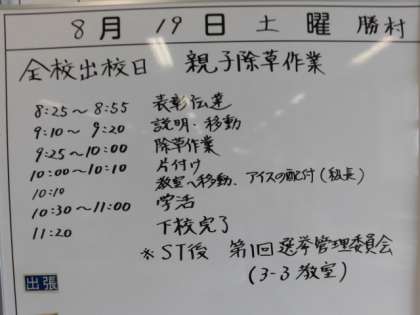 8月 19日 土曜 勝村
全校出校日 親子除草作業
8:25～8:55 表彰伝達
9:10～9:20 説明・移動
9:25～10:00 除草作業
10:00～10:10 片付け
10:10 教室へ移動、アイスの配付(級長)
10:30～11:00 学活
11:20 下校完了
※ST後 第1回選挙管理委員会
(3-3教室)
出張